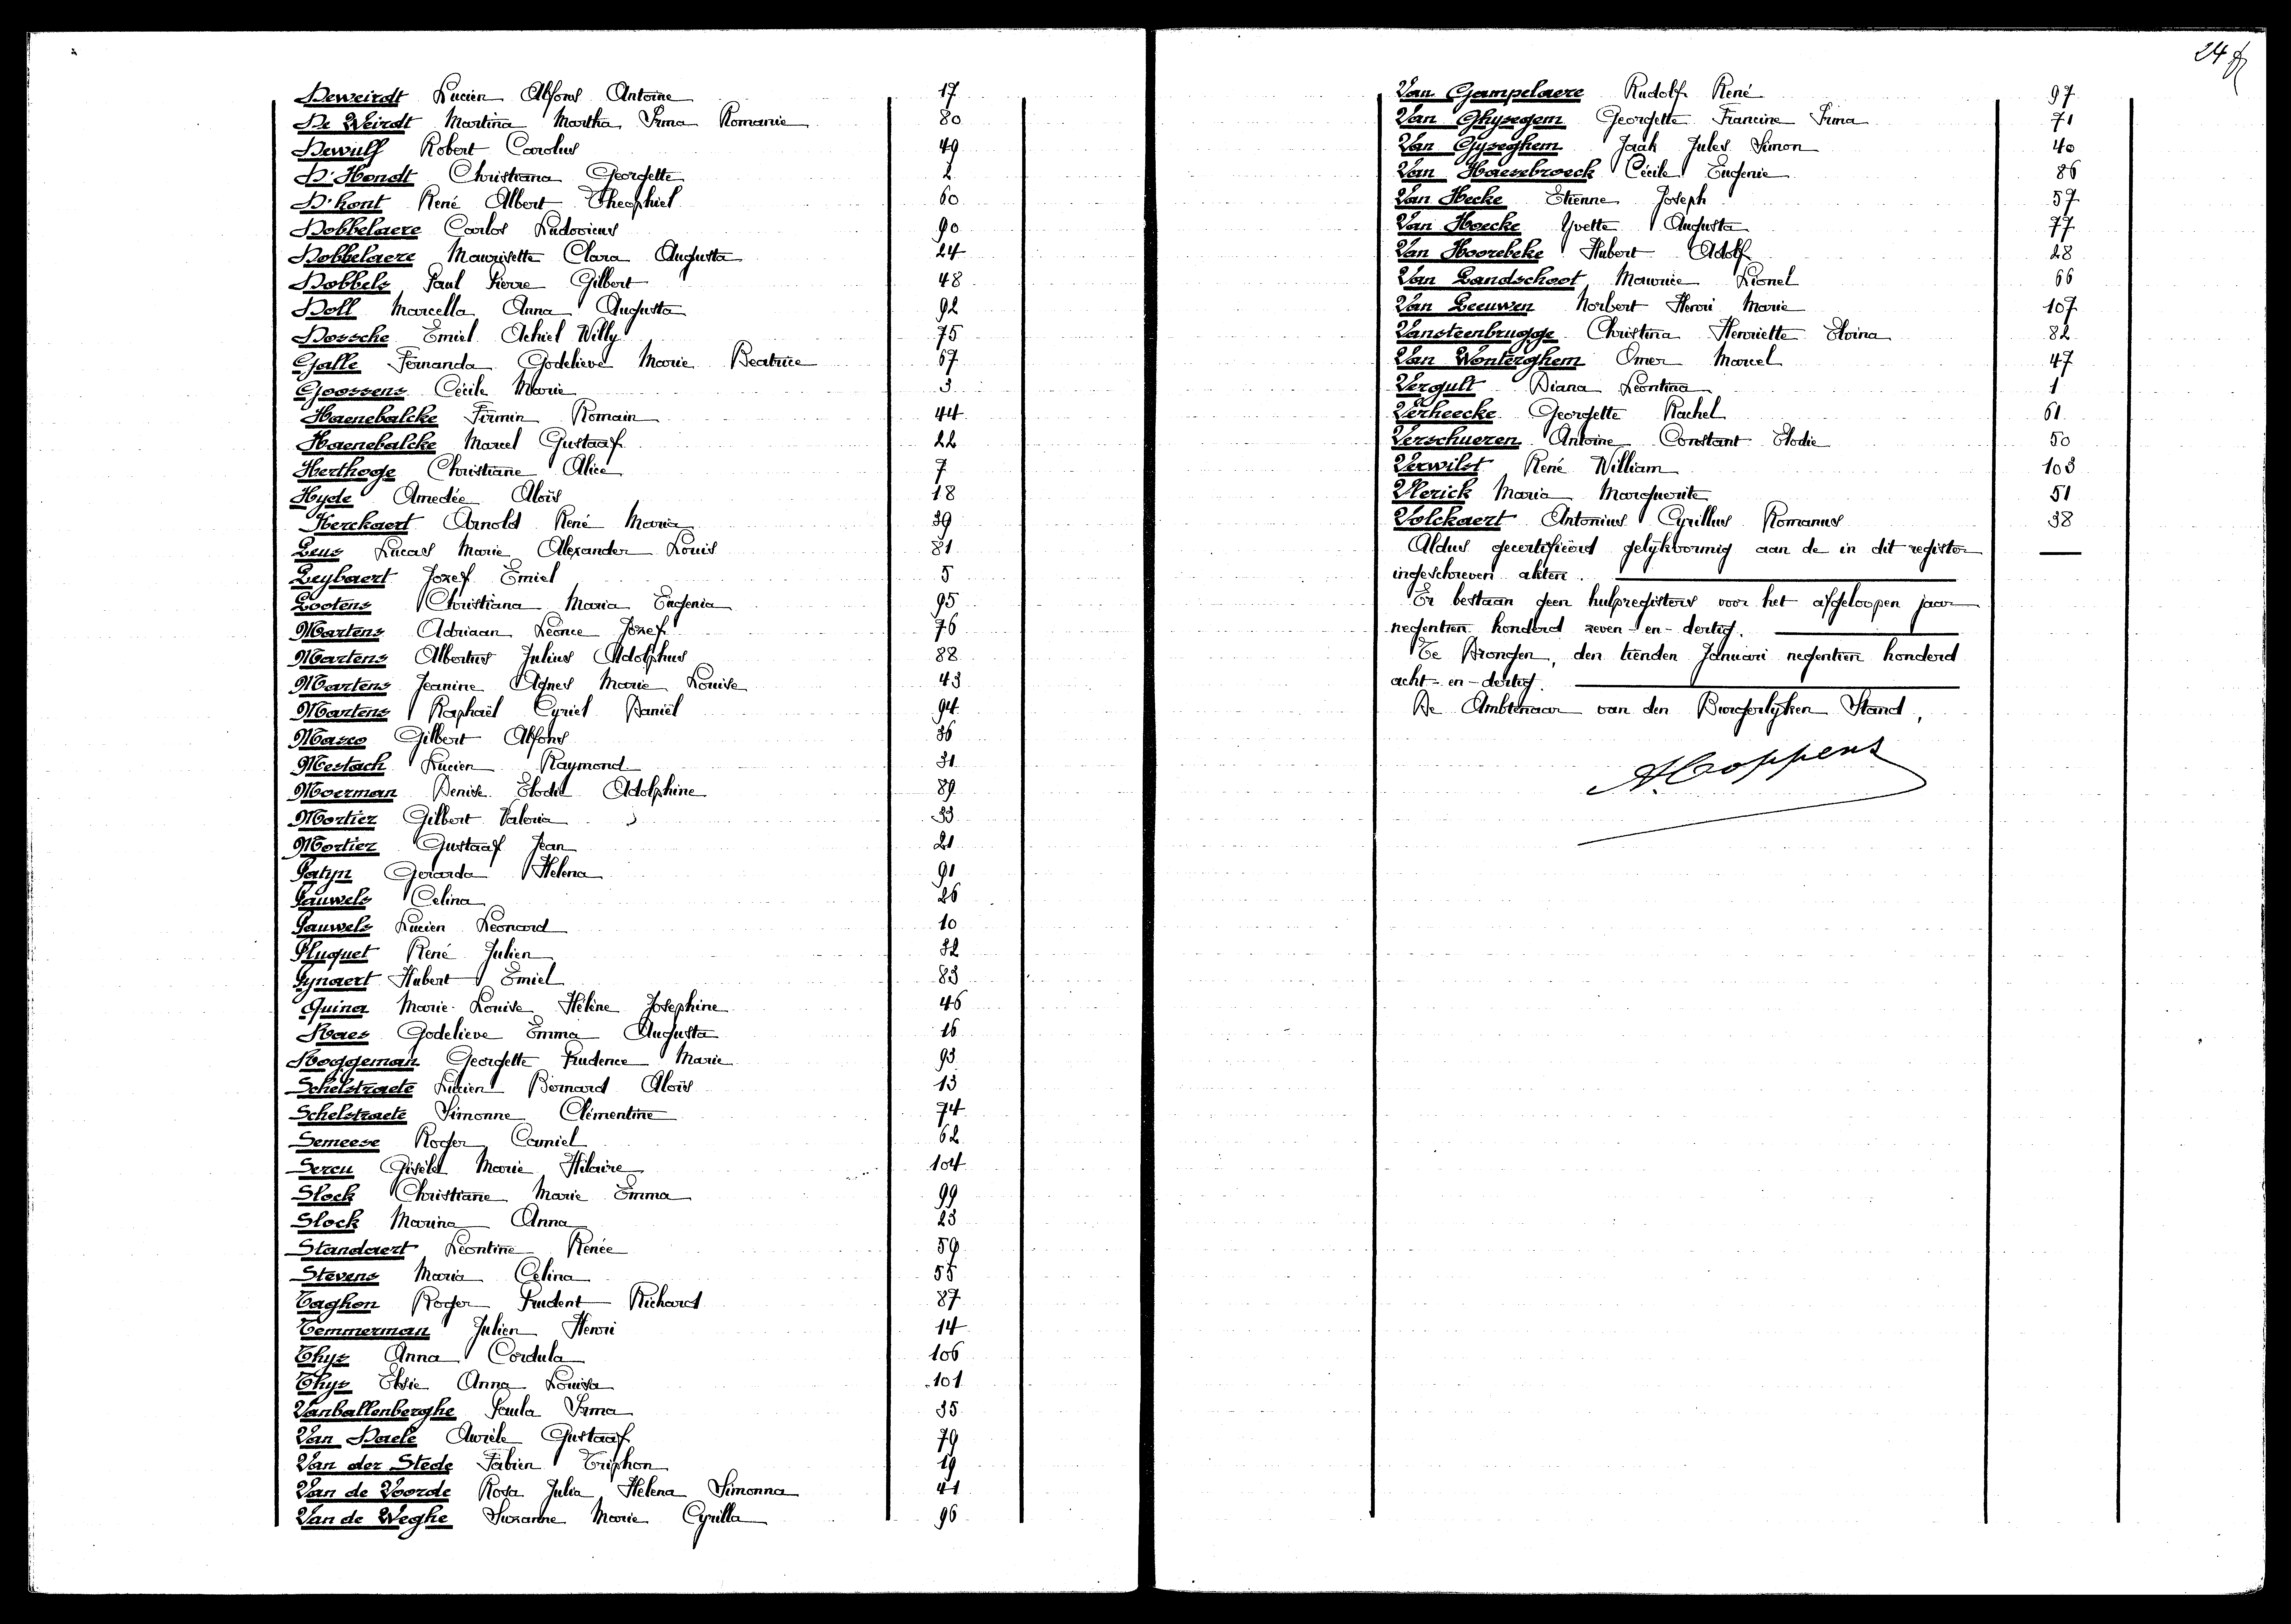 Deweirdt Lucien Alfons Antoine 17
De Weirdt Martina Martha Irma Romanie 80
Dewulf Robert Carolus 49
D'Hondt Christiana Georgette 2
D'hont René Albert Theophiel 60
Dobbelaere Carlos Ludovicus 90
Dobbelaere Maurisette Clara Augusta 24
Dobbels Paul Pierre Gilbert 48
Doll Marcella Anna Augusta 92
Dossche Emiel Achiel Willy 75
Galle Fernanda Godelieve Marie Beatrice 67
Goossens Cécile Marie 3
Haenebalcke Firmin Romain 44
Haenebalcke Marcel Gustaaf 22
Herthoge Christiane Alice 7
Hyde Amedée Aloïs 18
Kerckaert Arnold René Maria 39
Leus Lucas Marie Alexander Louis 81
Leybaert Jozef Emiel 5
Lootens Christiana Maria Eugenia 95
Martens Adriaan Léonce Jozef 76
Martens Albertus Julius Adolphus 88
Martens Jeanine Agnes Marie Louise 43
Martens Raphaël Cyriel Daniël 94
Masco Gilbert Alfons 36
Mestach Lucien Raymond 31
Moerman Denise Elodie Adolphine 89
Mortier Gilbert Valeria 33
Mortier Gustaaf Jean 21
Patyn Gerarda Helena 91
Pauwels Celina 26
Pauwels Lucien Leonard 10
Pluquet René Julien 32
Pynaert Hubert Emiel 83
Quina Marie-Louise Hélène Josephine 46
Raes Godelieve Emma Augusta 16
Roggeman Georgette Prudence Marie 93
Schelstraete Lucien Bernard Aloïs 13
Schelstraete Simonne Clémentine 74
Semeese Roger Camiel 62
Sercu Gisèle Marie Hilaire 104
Slock Christiane Marie Emma 99
Slock Marina Anna 23
Standaert Léontine Renée 59
Stevens Maria Celina 55
Taghon Roger Prudent Richard 87
Temmerman Julien Henri 14
Thys Anna Cordula 106
Thys Elsie Anna Louisa 101
Vanballenberghe Paula Irma 35
Van Daele Aurèle Gustaaf 79
Van der Stede Fabien Triphon 19
Van de Voorde Rosa Julia Helena Simonna 41
Van de Weghe Suzanne Marie Cyrilla 96
24
Van Gampelaere Rudolf René 97
Van Ghysegem Georgette Francine Irma 71
Van Gyseghem Jaak Jules Simon 40
Van Haesebroeck Cécile Eugenie 86
Van Hecke Etienne Joseph 57
Van Hoecke Yvette Augusta 77
Van Hoorebeke Hubert Adolf 28
Van Landschoot Maurice Lionel 66
Van Leeuwen Norbert Henri Marie 107
Vansteenbrugge Christina Henriette Elvina 82
Van Wonterghem Omer Marcel 47
Vergult Diana Leontina 1
Verheecke Georgette Rachel 61
Verschueren Antoine Constant Elodie 50
Verwilst René William 103
Vlerick Maria Marguerite 51
Volckaert Antonius Cyrillus Romanus 38
Aldus gecertifieërd gelijkvormig aan de in dit register
ingeschreven akten.
Er bestaan geen hulpregisters voor het afgeloopen jaar
negentien honderd zeven-en-dertig.
Te Drongen, den tienden Januari negentien honderd
acht-en-dertig.
De Ambtenaar van den Burgerlijken Stand,
A. Coppens